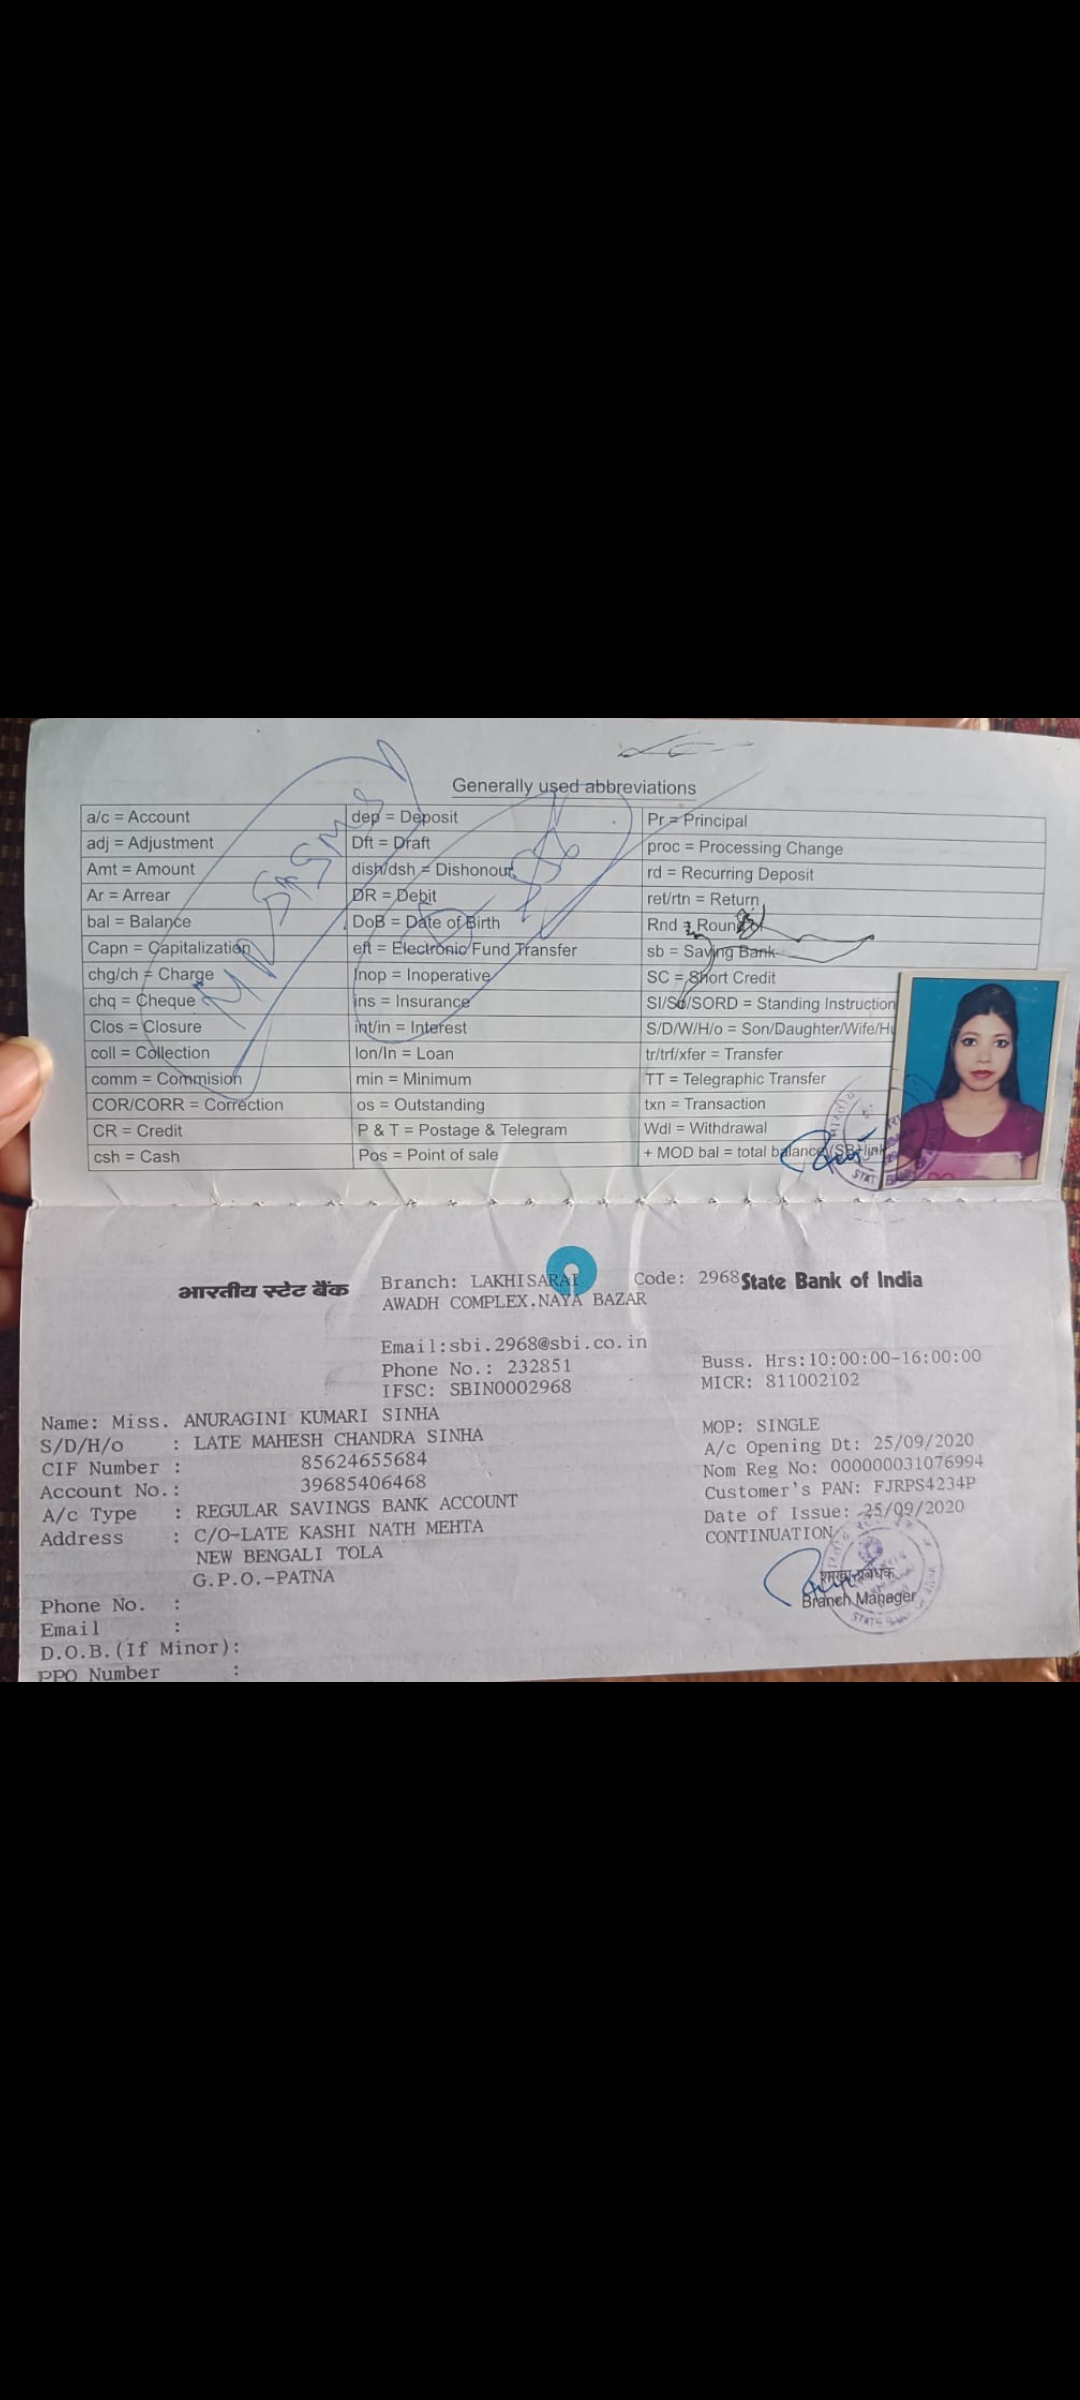 Generally used abbreviations
a/c = Account
adj = Adjustment
Amt = Amount
Ar = Arrear
bal = Balance
Capn = Capitalization
chg/ch = Charge
chq = Cheque
Clos = Closure
coll = Collection
comm = Commision
COR/CORR = Correction
CR = Credit
csh = Cash
dep = Deposit
Dft = Draft
dish/dsh = Dishonour
DR = Debit
DoB = Date of Birth
eft = Electronic Fund Transfer
Inop = Inoperative
ins = Insurance
int/in = Interest
lon/ln = Loan
min = Minimum
os = Outstanding
P & T = Postage & Telegram
Pos = Point of sale
Pr = Principal
proc = Processing Change
rd = Recurring Deposit
ret/rtn = Return
Rnd = Round
sb = Saving Bank
SC = Short Credit
SI/So/SORD = Standing Instruction
S/D/W/H/o = Son/Daughter/Wife/
tr/trf/xfer = Transfer
TT = Telegraphic Transfer
txn = Transaction
Wdl = Withdrawal
+ MOD bal = total balance (SB+
भारतीय स्टेट बैंक Branch: LAKHISARAI Code: 2968 State Bank of India
AWADH COMPLEX,NAYA BAZAR
Email:sbi.2968@sbi.co.in
Phone No.: 232851 Buss. Hrs:10:00:00-16:00:00
IFSC: SBIN0002968 MICR: 811002102
Name: Miss. ANURAGINI KUMARI SINHA MOP: SINGLE
S/D/H/o : LATE MAHESH CHANDRA SINHA A/c Opening Dt: 25/09/2020
CIF Number : 85624655684 Nom Reg No: 000000031076994
Account No.: 39685406468 Customer's PAN: FJRPS4234P
A/c Type : REGULAR SAVINGS BANK ACCOUNT Date of Issue: 25/09/2020
Address : C/O-LATE KASHI NATH MEHTA CONTINUATION
NEW BENGALI TOLA
G.P.O.-PATNA
शाखा प्रबंधक
Branch Manager
Phone No. :
Email :
D.O.B.(If Minor):
PPO Number :